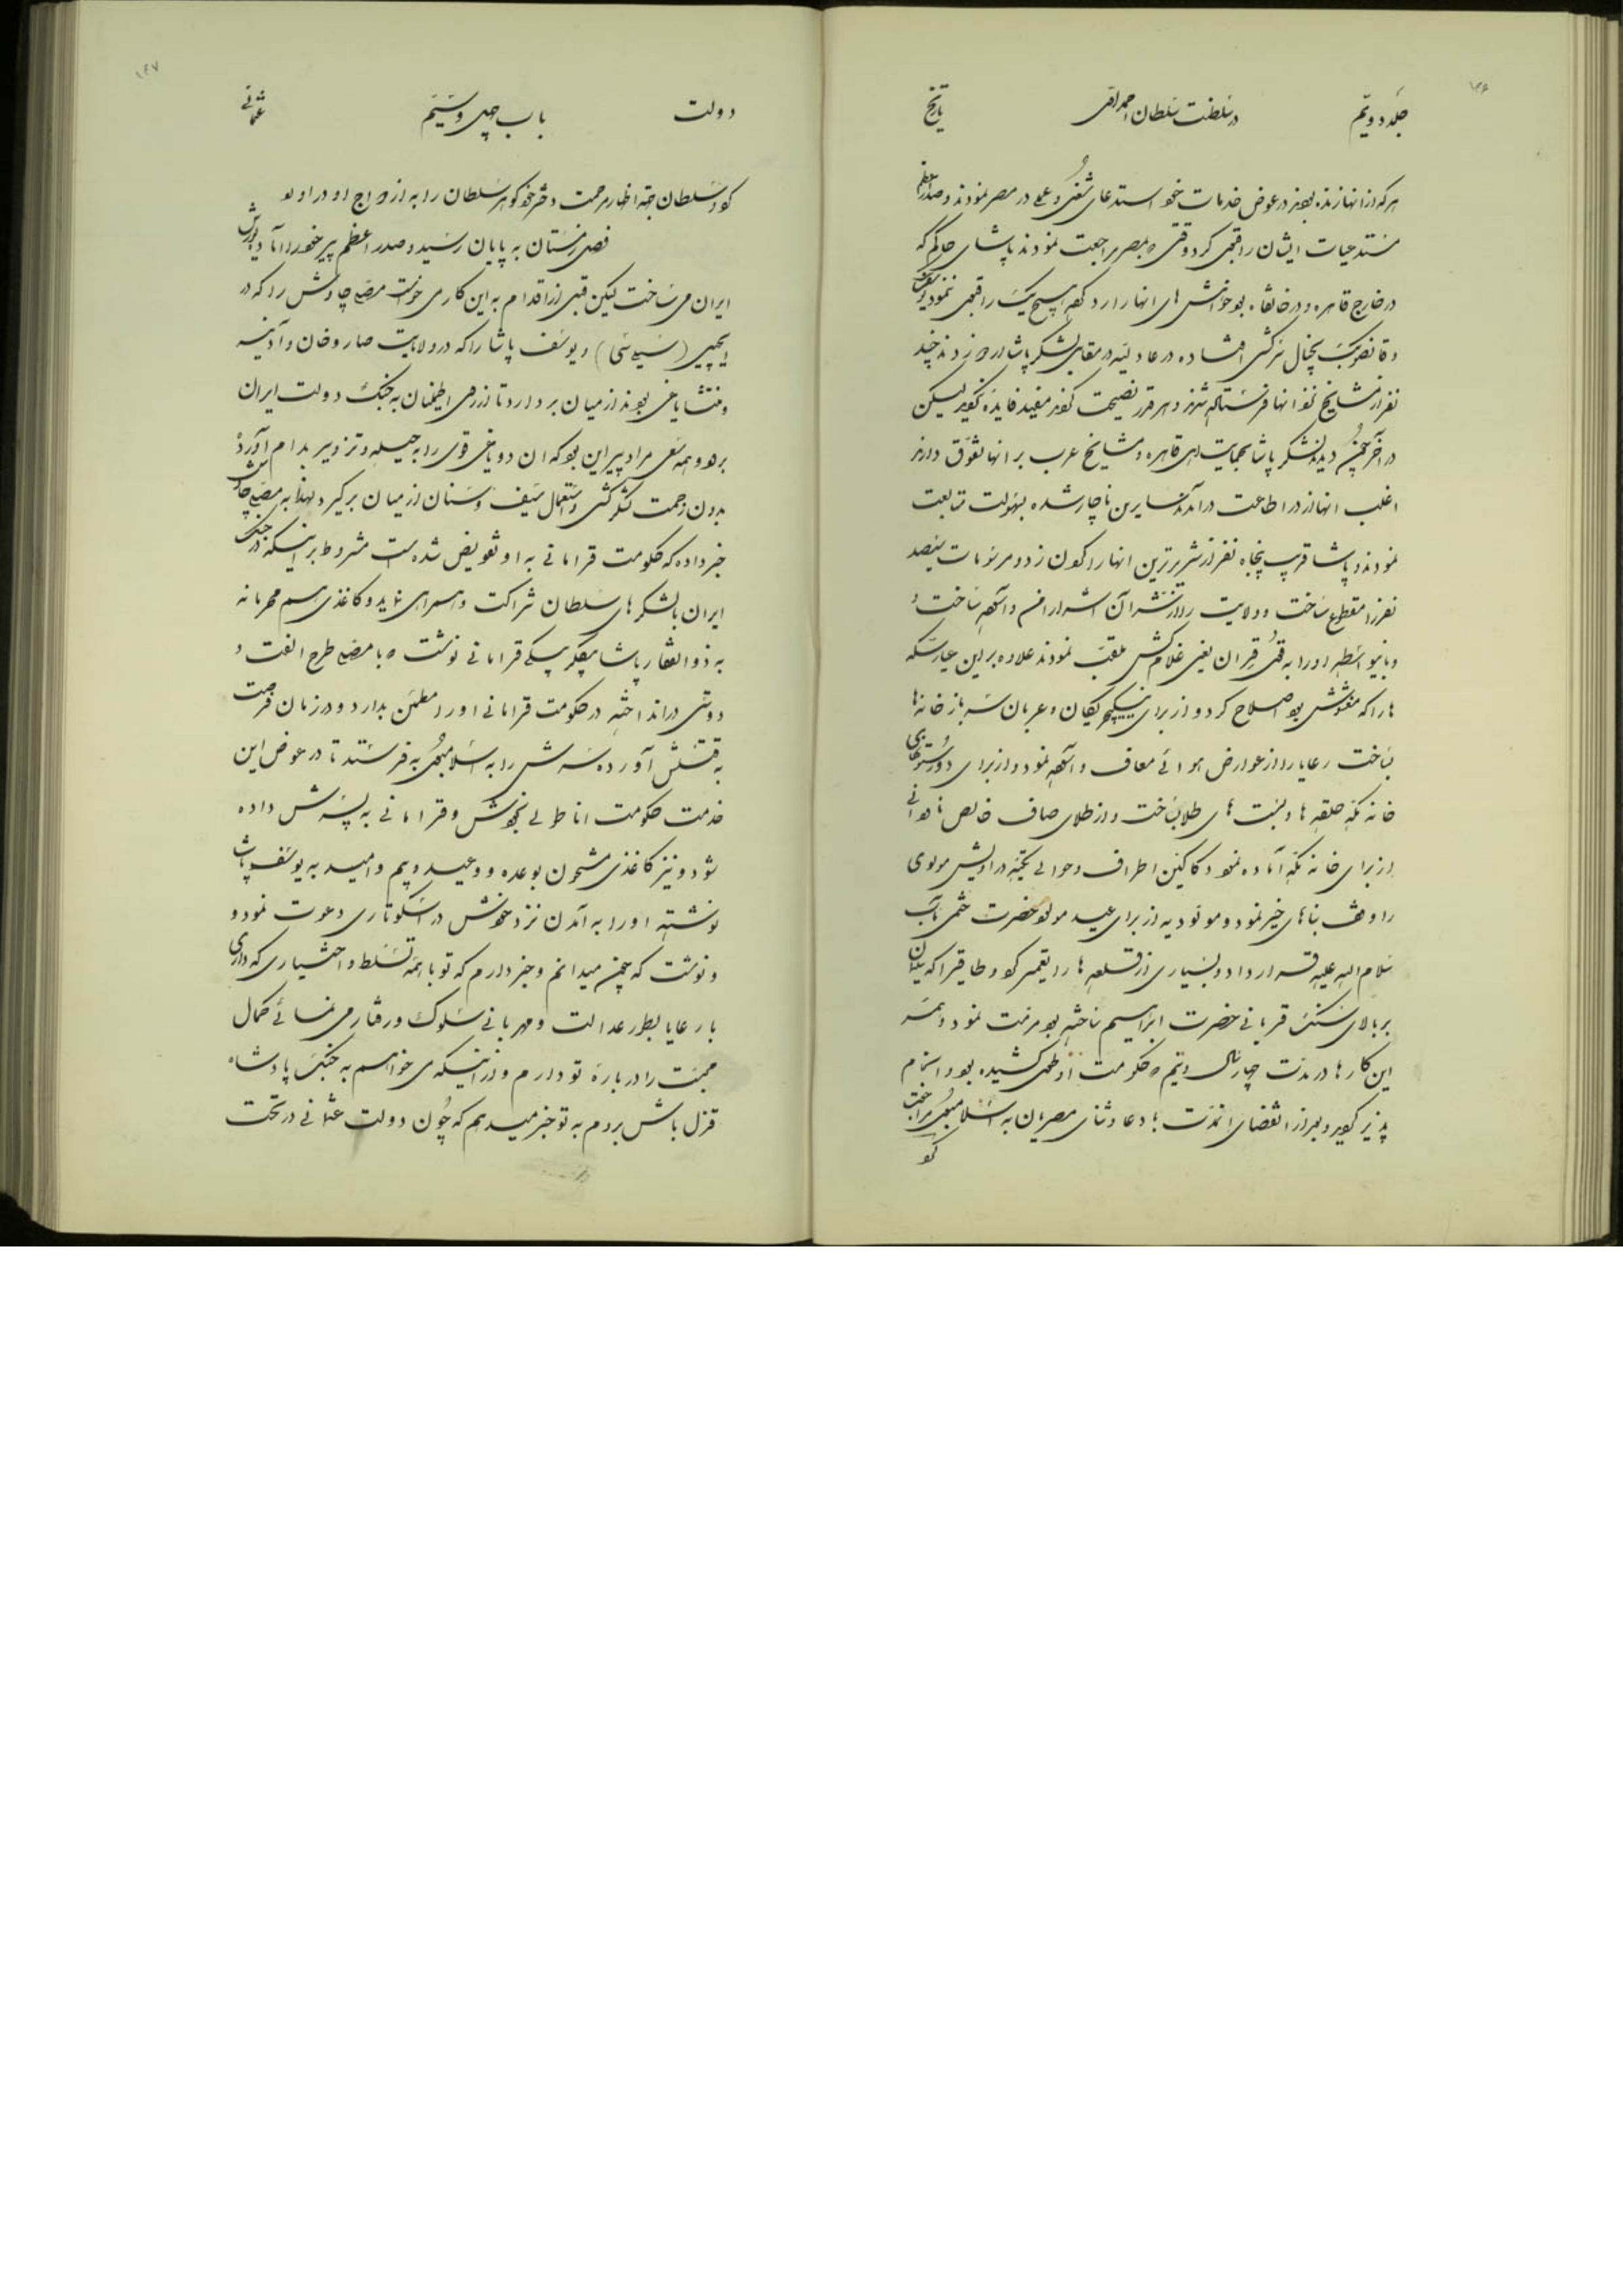 ۱۴۶
جلد دویّم
در سلطنت سلطان احمد اوّل
تاریخ
هر که از انها زنده بودند در عوض خدمات خود استدعای شغل و عمل در مصر نمودند و صدراعظم
مستدعیات ایشان را قبول کرد وقتی که بمصر مراجعت نمودند پاشای حاکم که
در خارج قاهره و در خانقاه بود خواهش های انها را رد کرده هیچ یک را قبول ننمود
و قانصو بیک بخیال سرکشی افتاده در عادلیه در مقابل لشکر پاشا اردو زدند چند
نفر از مشایخ نزد انها فرستاده شدند و هر قدر نصیحت کردند مفید فایده نگردید لیکن
در آخر چون دیدند لشکر پاشا بحمایت اهل قاهره و مشایخ عرب بر انها تفوّق دارند
اغلب انها از در اطاعت درآمدند سایرین ناچار شده بسهولت متابعت
نمودند و پاشا قریب پنجاه نفر از شریرترین انها را گردن زد و مرسومات سیصد
نفر را مقطوع ساخت و ولایت را از شر آن اشرار امن و آسوده ساخت و
و باینواسطه او را به قول قران یعنی غلام کش ملقب نمودند علاوه بر این عیار سکه
ها را که مغشوش بود اصلاح کرد و از برای ینیکچریکان و عربان سرباز خانه ها
بساخت رعایا را از عوارض هوائی معاف و آسوده نمود و از برای در و ستونهای
خانه مکه حلقه ها و بست های طلا بساخت و از طلای صاف خالص ناودانی
از برای خانه مکه آماده نمود دکاکین اطراف و حوالی تکیه دراویش مولوی
را وقف بناهای خیر نمود و مولودیه از برای عید مولود حضرت ختمی مآب
سلام الله علیه قرار داد و بسیاری از قلعه ها را تعمیر کرد و طاقی را که
بر بالای سنگ قربانی حضرت ابراهیم ساخته بود مرمت نمود و همه
این کارها در مدت چهار سال و نیم که حکومت او طول کشیده بود انجام
پذیر گردید و بعد از انقضای انمدت با دعا و ثنای مصریان به اسلامبول مراجعت
کرد
۱۴۷
دولت
باب چهل و سیّم
عثمانی
کرد سلطان جهة اظهار مرحمت دختر خود گوهر سلطان را به ازدواج او در اورد
فصل زمستان به پایان رسید و صدر اعظم پیر خود را آماده یورش
ایران می ساخت لیکن قبل از اقدام به این کار می خواست مصلی چاوش را که در
ایچیل (سیلسی) و یوسف پاشا را که در ولایت صاروخان و آدینه
و منتشا یاغی بودند از میان بردارد تا از روی اطمینان به جنک دولت ایران
برود و همه سعی مراد پیر این بود که ان دو یاغی قوی را به حیله و تزویر بدام آورد
بدون زحمت لشکر کشی و استعمال سیف و سنان از میان برگیرد لهذا به مصلی چاوش
خبر داده که حکومت قرامانی به او تفویض شده است مشروط بر اینکه در جنک
ایران با لشکرهای سلطان شراکت و همراهی نماید و کاغذی هم محرمانه
به ذوالفقار پاشا بیکلربیکی قرامانی نوشت که با مصلی طرح الفت و
دوستی در انداخته در حکومت قرامانی او را مطمئن بدارد و در زمان فرصت
به قتلش آورده سرش را به اسلامبول به فرستد تا در عوض این
خدمت حکومت اناطولی بخودش و قرامانی به پسرش داده
شود و نیز کاغذی مشحون بوعده و وعید و بیم و امید به یوسف پاشا
نوشته او را به آمدن نزد خودش در اسکوتاری دعوت نمود و
و نوشت که چون میدانم و خبر دارم که تو با همه تسلط و اختیاری که داری
با رعایا بطور عدالت و مهربانی سلوک و رفتار می نمائی کمال
محبت را درباره تو دارم و از اینکه می خواهم به جنک پادشاه
قزل باش بروم به تو خبر میدهم که چون دولت عثمانی در تحت